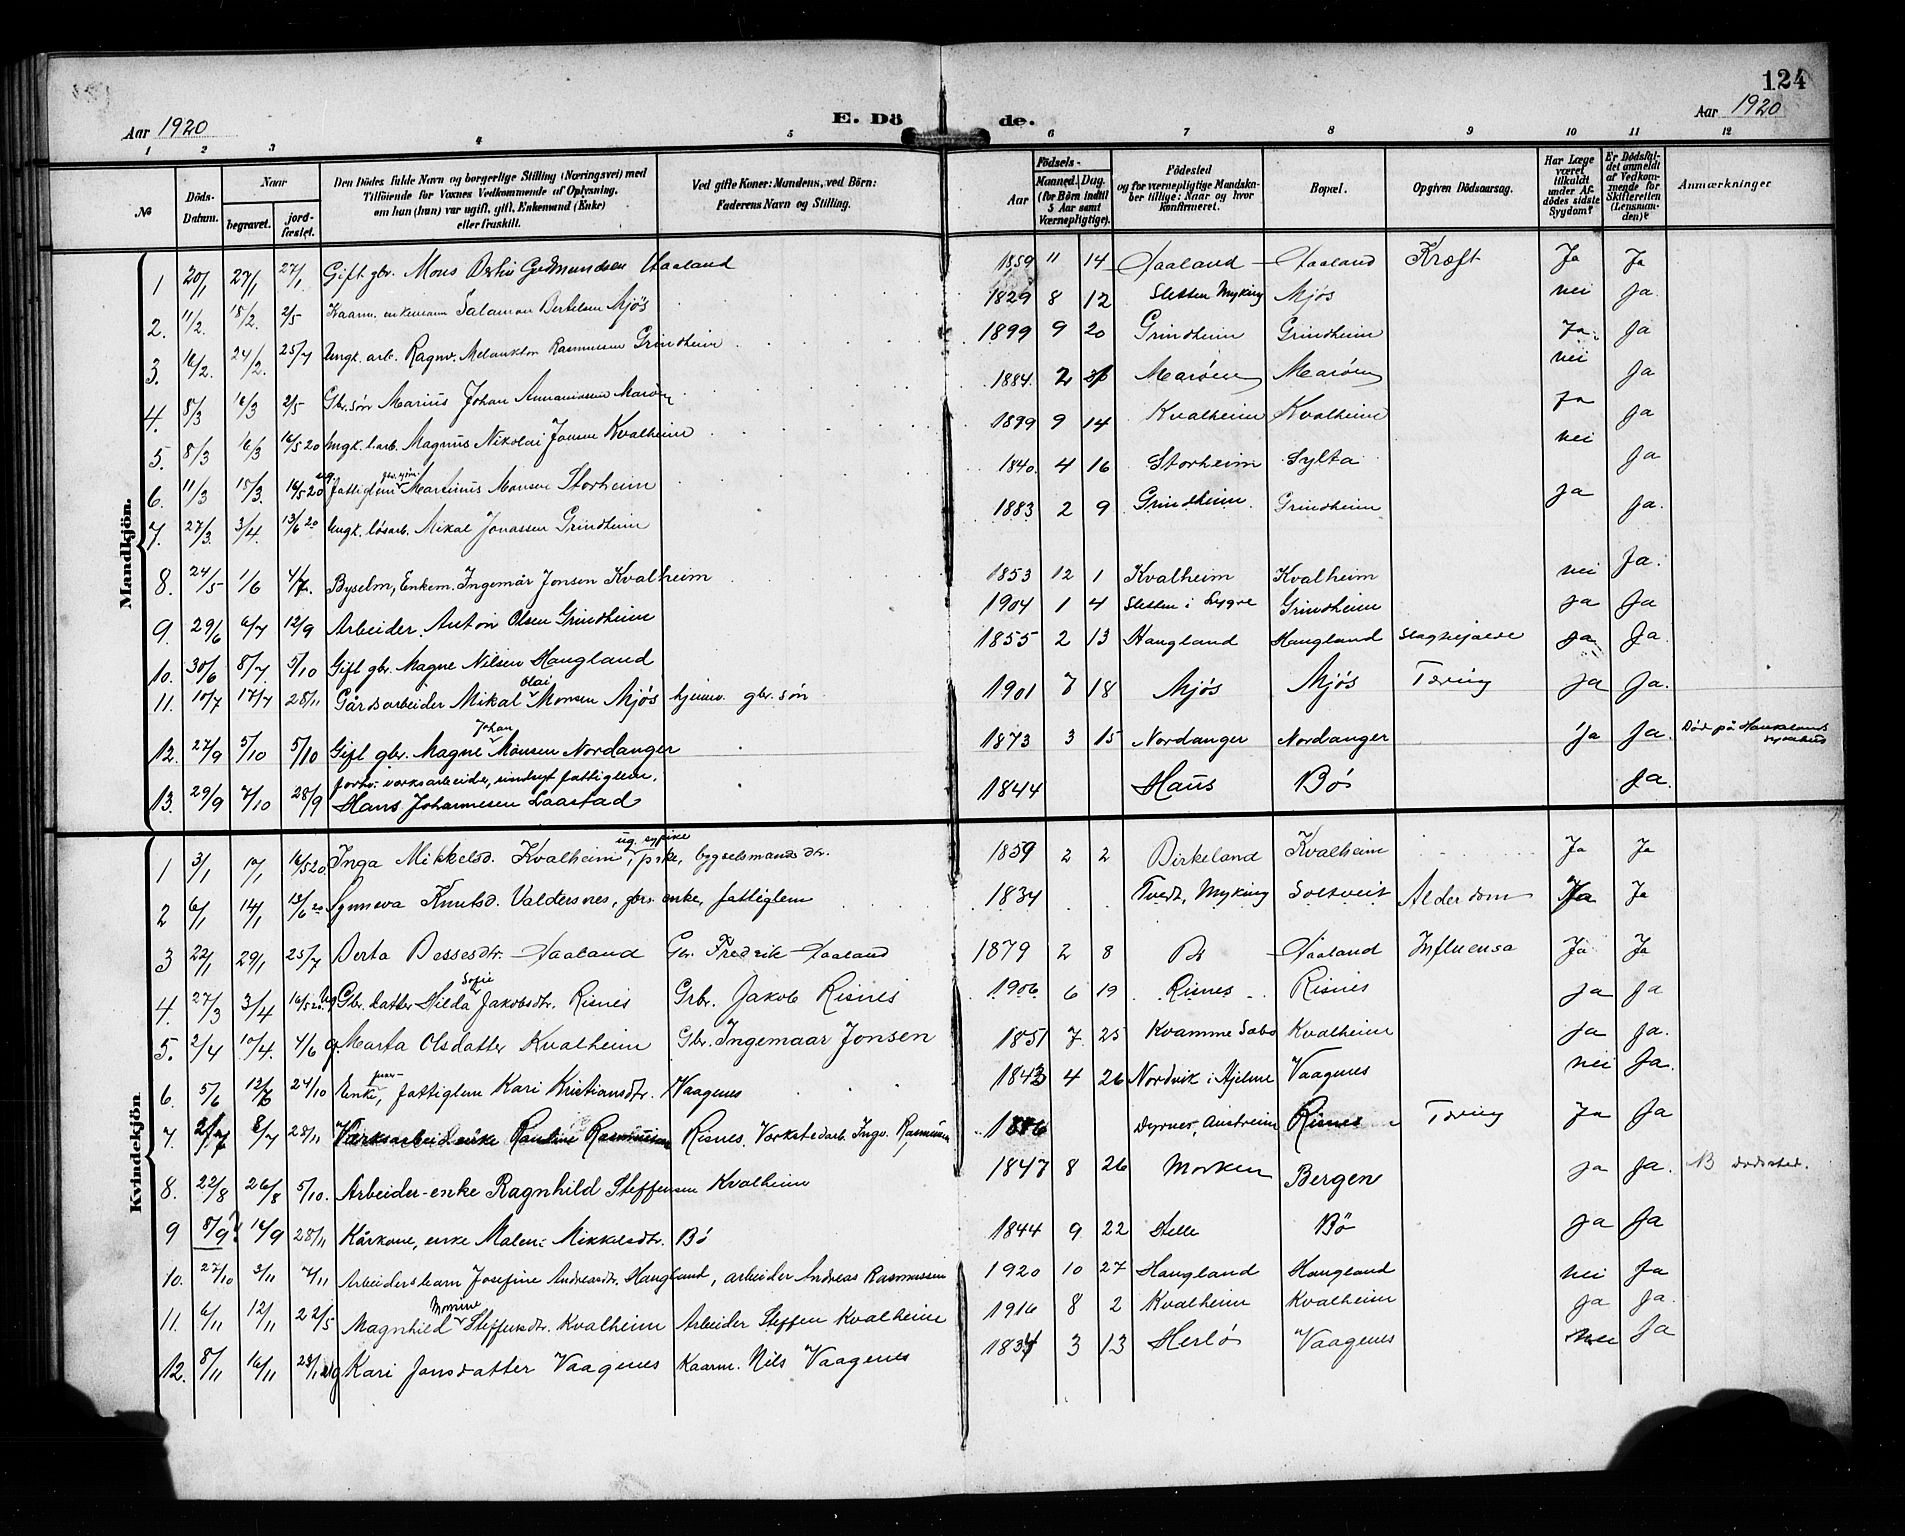 124
Aar 1920 E. Döde. Aar 1920
1 2 3 4 5 6 7 8 9 10 11 12
№ Döds-Datum. Naar begravet. jord-fæstet. Den Dödes fulde Navn og borgerlige Stilling (Næringsvei) med Tilföiende for Voxnes Vedkommende af Oplysning, om han (hun) var ugift, gift, Enkemand (Enke) eller fraskilt. Ved gifte Koner: Mandens, ved Börn: Faderens Navn og Stilling. Födsels- Aar Maaned. Dag. (for Börn indtil 5 Aar samt Værnepligtige). Födested og for værnepligtige Mandskaber tillige: Naar og hvor konfirmeret. Bopæl. Opgiven Dödsaarsag. Har Læge været tilkaldt under Afdödes sidste Sygdom? Er Dödsfaldet anmeldt af Vedkommende for Skifteretten (Lensmanden)? Anmærkninger
Mandkjön.
1 20/1 27/1 27/1 Gift gbr. Mons Bertin Gudmundsen Aaaland 1859 11 14 Aaaland Aaaland Kræft Ja Ja
2. 11/2. 15/2. 2/5 Kaarm. enkemann Salamon Bertelsen Mjøs 1829 8 12 Sletten Myking Mjøs nei Ja.
3. 16/2. 24/2. 25/7 Ungk. arb. Ragnv. Melankton Rasmussen Grindheim 1899 9 20 Grindheim Grindheim Ja. Ja
4. 5/3 16/3 2/5 Gbr. søn Marius Johan Annaniassen Marøen 1884. 2 Marøen Marøen nei Ja
5. 8/3 16/3 16/5 20 Ungk. l.arb. Magnus Nikolai Jonsen Kvalheim 1899 9 14 Kvalheim Kvalheim Ja Ja
6. 11/3 15/3. 16/5 20 ug. fattiglem Martinus Monsen Storheim 1840. 4 16 Storheim Sylta nei Ja
7. 27/3. 3/4. 13/6 20 Ungk. løsarb. Mikal Jonassen Grindheim 1883 2 9 Grindheim. Grindheim Ja Ja.
8. 24/5 1/6 4/7. Byselm, Enkem. Ingemar Jonsen Kvalheim 1853 12 1 Kvalheim Kvalheim nei Ja.
9. 29/6 6/7 12/9 Arbeider. Anton Olsen Grindheim 1904 1 4 Sletten i Lygre Grindheim Ja Ja
10. 30/6 8/7. 5/10 Gift gbr. Magne Nilsen Haugland 1855 2 13 Haugland Haugland Ja Ja.
11. 10/7 17/7 28/11 Gårdsarbeider Mikal Olai Monsen Mjøs hjemv. gbr. søn 1901 7 18 Mjøs Mjøs Tæring Ja Ja.
12. 27/9 5/10 5/10 Gift gbr. Magne Johan Monsen Nordanger 1873 3 15 Nordanger Nordanger Ja Ja. Død på Haukelands sykehus
13. 29/9 7/10 28/9 forhv. verksarbeider, sindsyk fattiglem, Hans Johannesen Laastad 1844 Haus Bø Ja.
Kvindekjön.
1 3/1 12/1 16/5 20 Inga Mikkelsd. Kvalheim, ug. sypike, bygselmands dtr. 1859 2 2 Birkeland Kvalheim Ja Ja
2 6/1 14/1 13/6 20 Synneva Knutsd. Valdersnes, gbrs. enke, fattiglem 1834 Tvedt, Myking Soltveit Alderdom Ja Ja
3 22/1 29/1 25/7 Berta Bessesdtr. Aaaland Gbr. Fredrik Aaaland 1879 2 8 Bø Aaaland Influensa Ja Ja
4. 27/3 3/4 16/5 20 Ug. Gbr. datter Hilda Sofie Jakobsdtr. Risnes Grbr. Jakob Risnes 1906 6 19 Risnes Risnes Ja Ja
5. 2/4 10/4. 4/6 g. Marta Olsdatter Kvalheim Gbr. Ingemaar Jonsen 1851 7 25 Kvamme Sabø Kvalheim Ja Ja.
6. 5/6 12/6 24/10 Enke, fattiglem Kari Kristiansdtr. Vaagenes 1843 4 26 Nordvik i Hjelme Vaagenes nei Ja.
7. 8/7 28/11 Værksarbeid. enke Pauline Rasmussen Risnes. Verkstedarb. Ingv. Rasmussen 1886 Dyrnes, Austreim Risnes Tæring Ja Ja
8. 22/8 26/8 5/10. Arbeider-enke Ragnhild Steffensen Kvalheim 1847 8 26 Morken Bergen Ja Ja. NB dødssted.
9 8/9 16/9 28/11 Kårkone, enke Malene Mikkelsdtr. Bø 1844 9 22 Stelle Bø Ja Ja
10. 27/10 3/11 7/11 Arbeidersbarn Josefine Andreasdtr. Haugland, arbeider Andreas Rasmussen 1920 10 27 Haugland Haugland nei Ja
11. 6/11 12/11 22/5 Magnhild Monine Steffensdtr. Kvalheim Arbeider Steffen Kvalheim 1916 8 2 Kvalheim Kvalheim Ja Ja.
12. 8/11 16/11 g Kari Jonsdatter Vaagenes Kaarm. Nils Vaagenes 1834 3 13 Herlø Vaagenes nei Ja